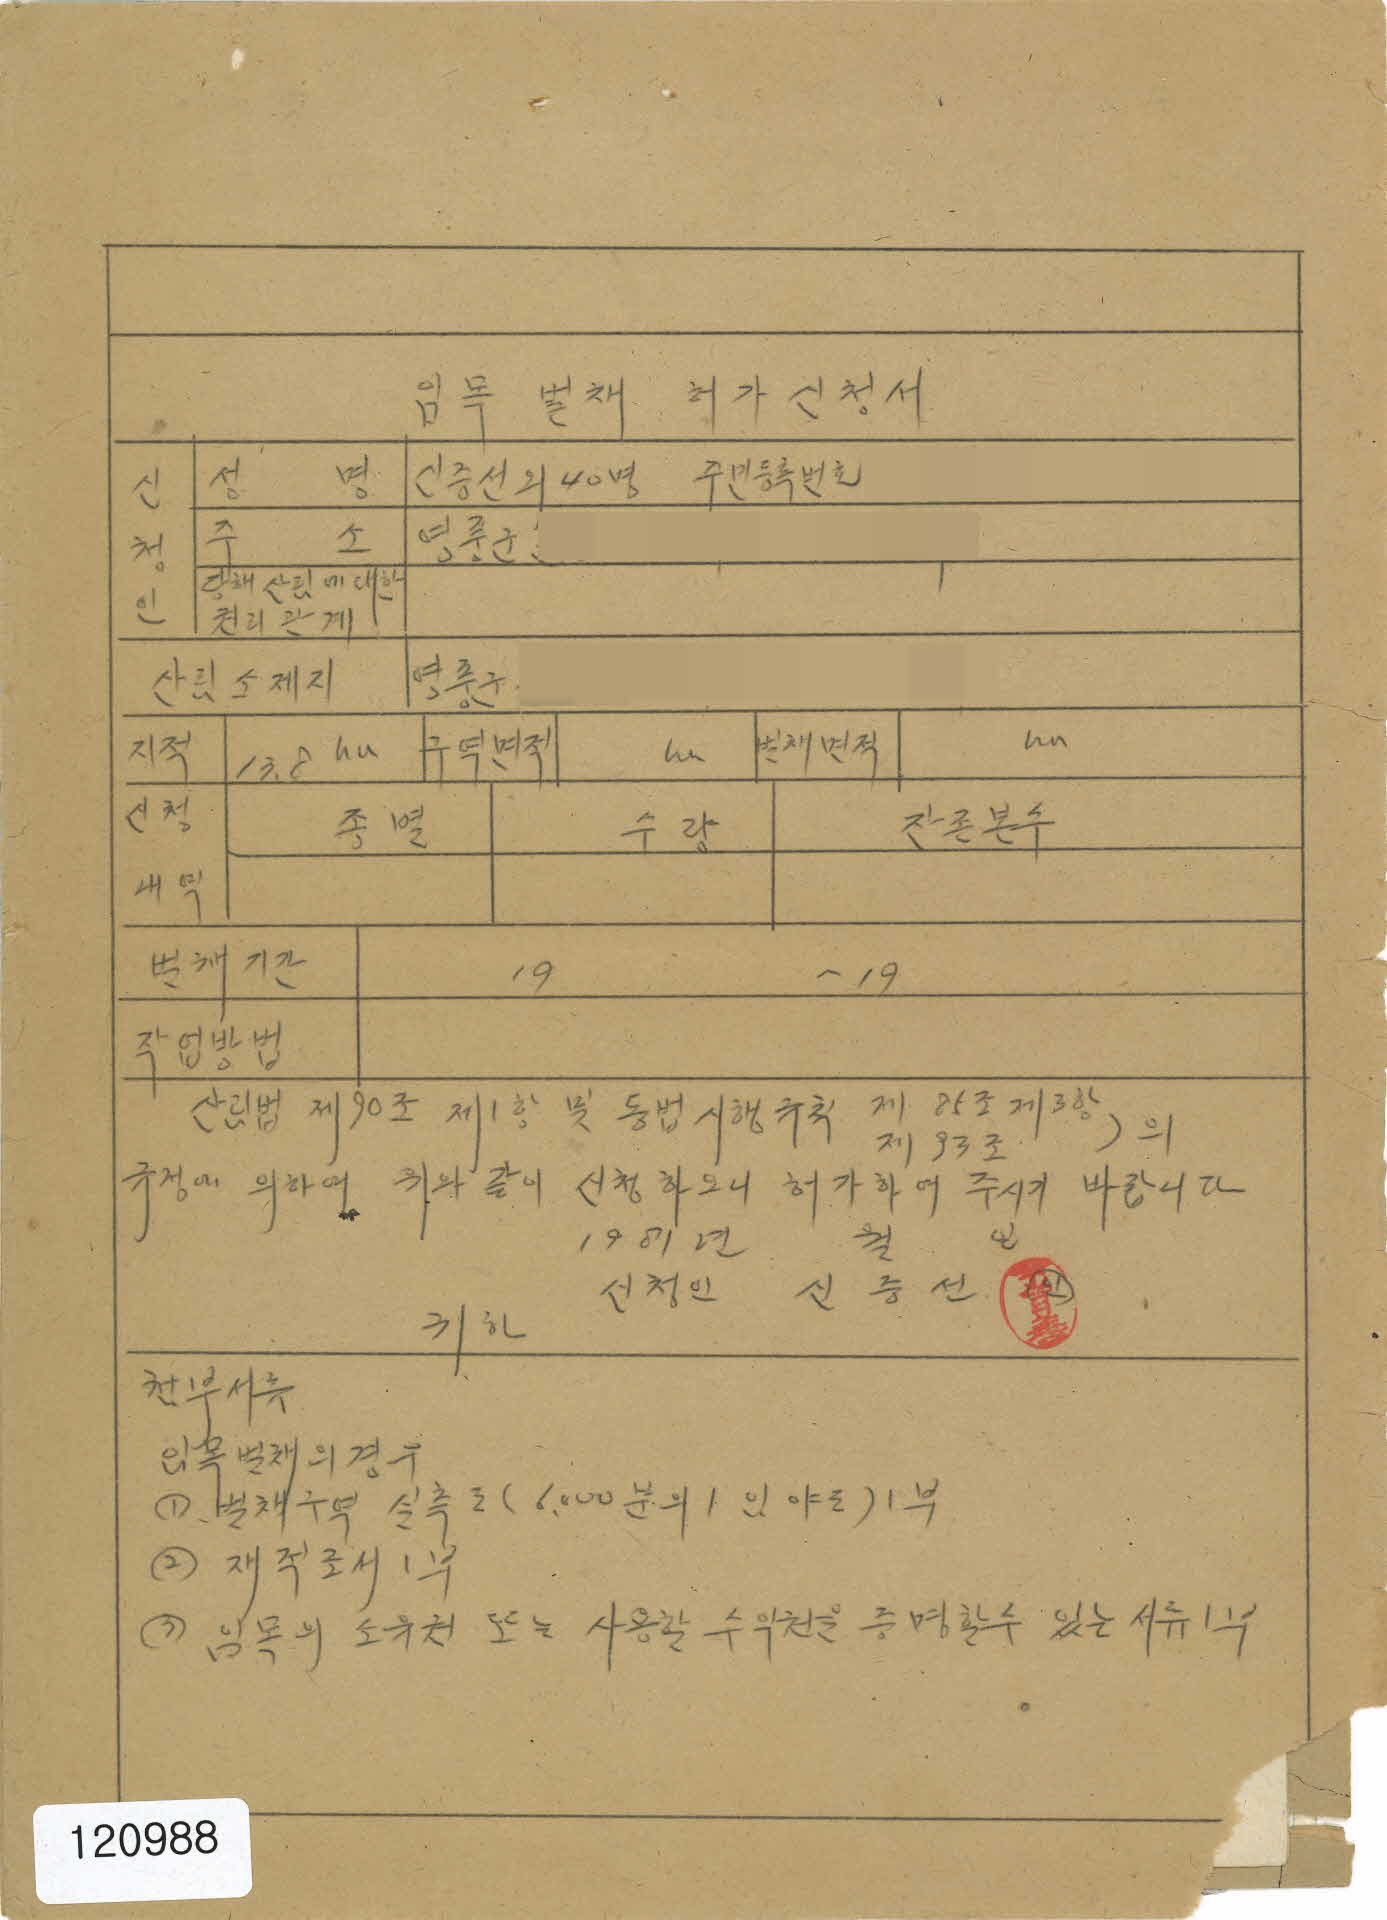 임목 벌채 허가신청서
신청인
성 명 신증선외40명 주민등록번호
주 소 영풍군
당해산림에대한
권리관계
산림소제지 영풍군
지적 13.8 ha 구역면적 ha 벌채면적 ha
신청 종별 수량 잔존본수
내역
벌채기간 19 ~19
작업방법
산림법 제90조 제1항 및 동법시행규칙 제85조제3항
제93조 )의
규정에 의하여 귀와 같이 신청하오니 허가하여 주시기 바랍니다
1981년 월 일
신청인 신증선 (인)
귀하
첨부서류
임목벌채의경우
① 벌채구역 실측도(6,000분의1 임야도)1부
② 재적조서1부
③ 임목의 소유권 또는 사용할 수익권을 증명할수 있는 서류1부
120988